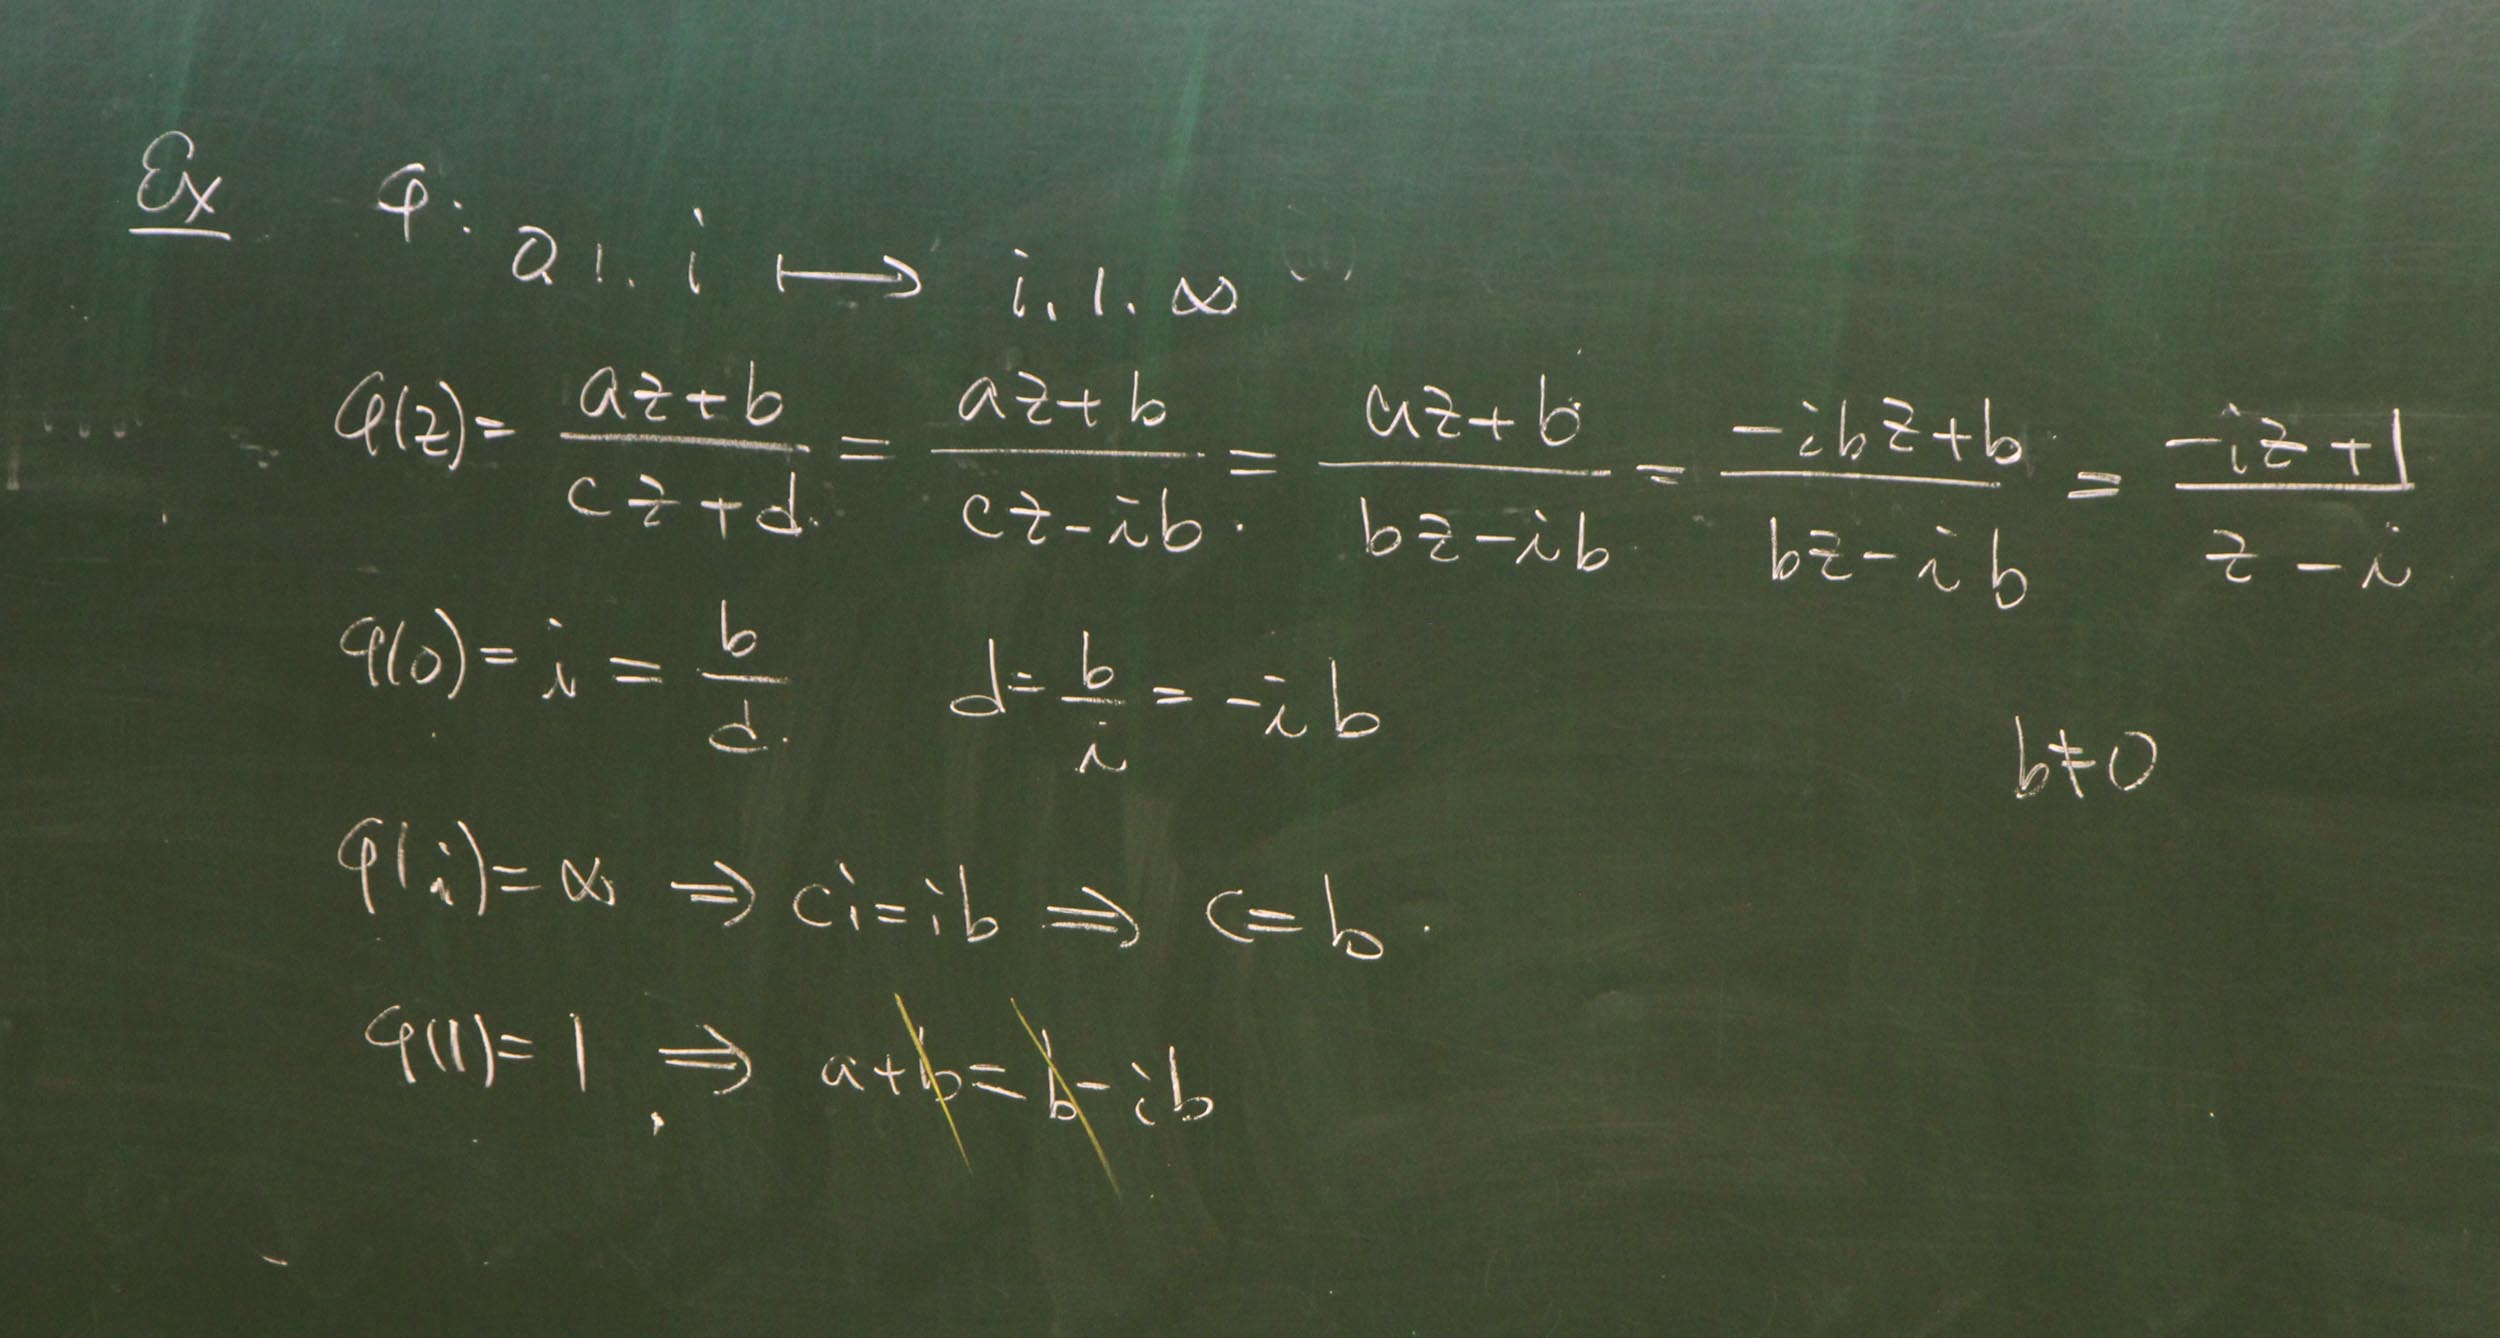 Ex φ: 0, 1, i ↦ i, 1, ∞
φ(z) = (az+b)/(cz+d) = (az+b)/(cz-ib) = (az+b)/(bz-ib) = (-ibz+b)/(bz-ib) = (-iz+1)/(z-i)
φ(0) = i = b/d d = b/i = -ib
b≠0
φ(i) = ∞ ⇒ ci = ib ⇒ c = b.
φ(1) = 1 ⇒ a+b = b-ib